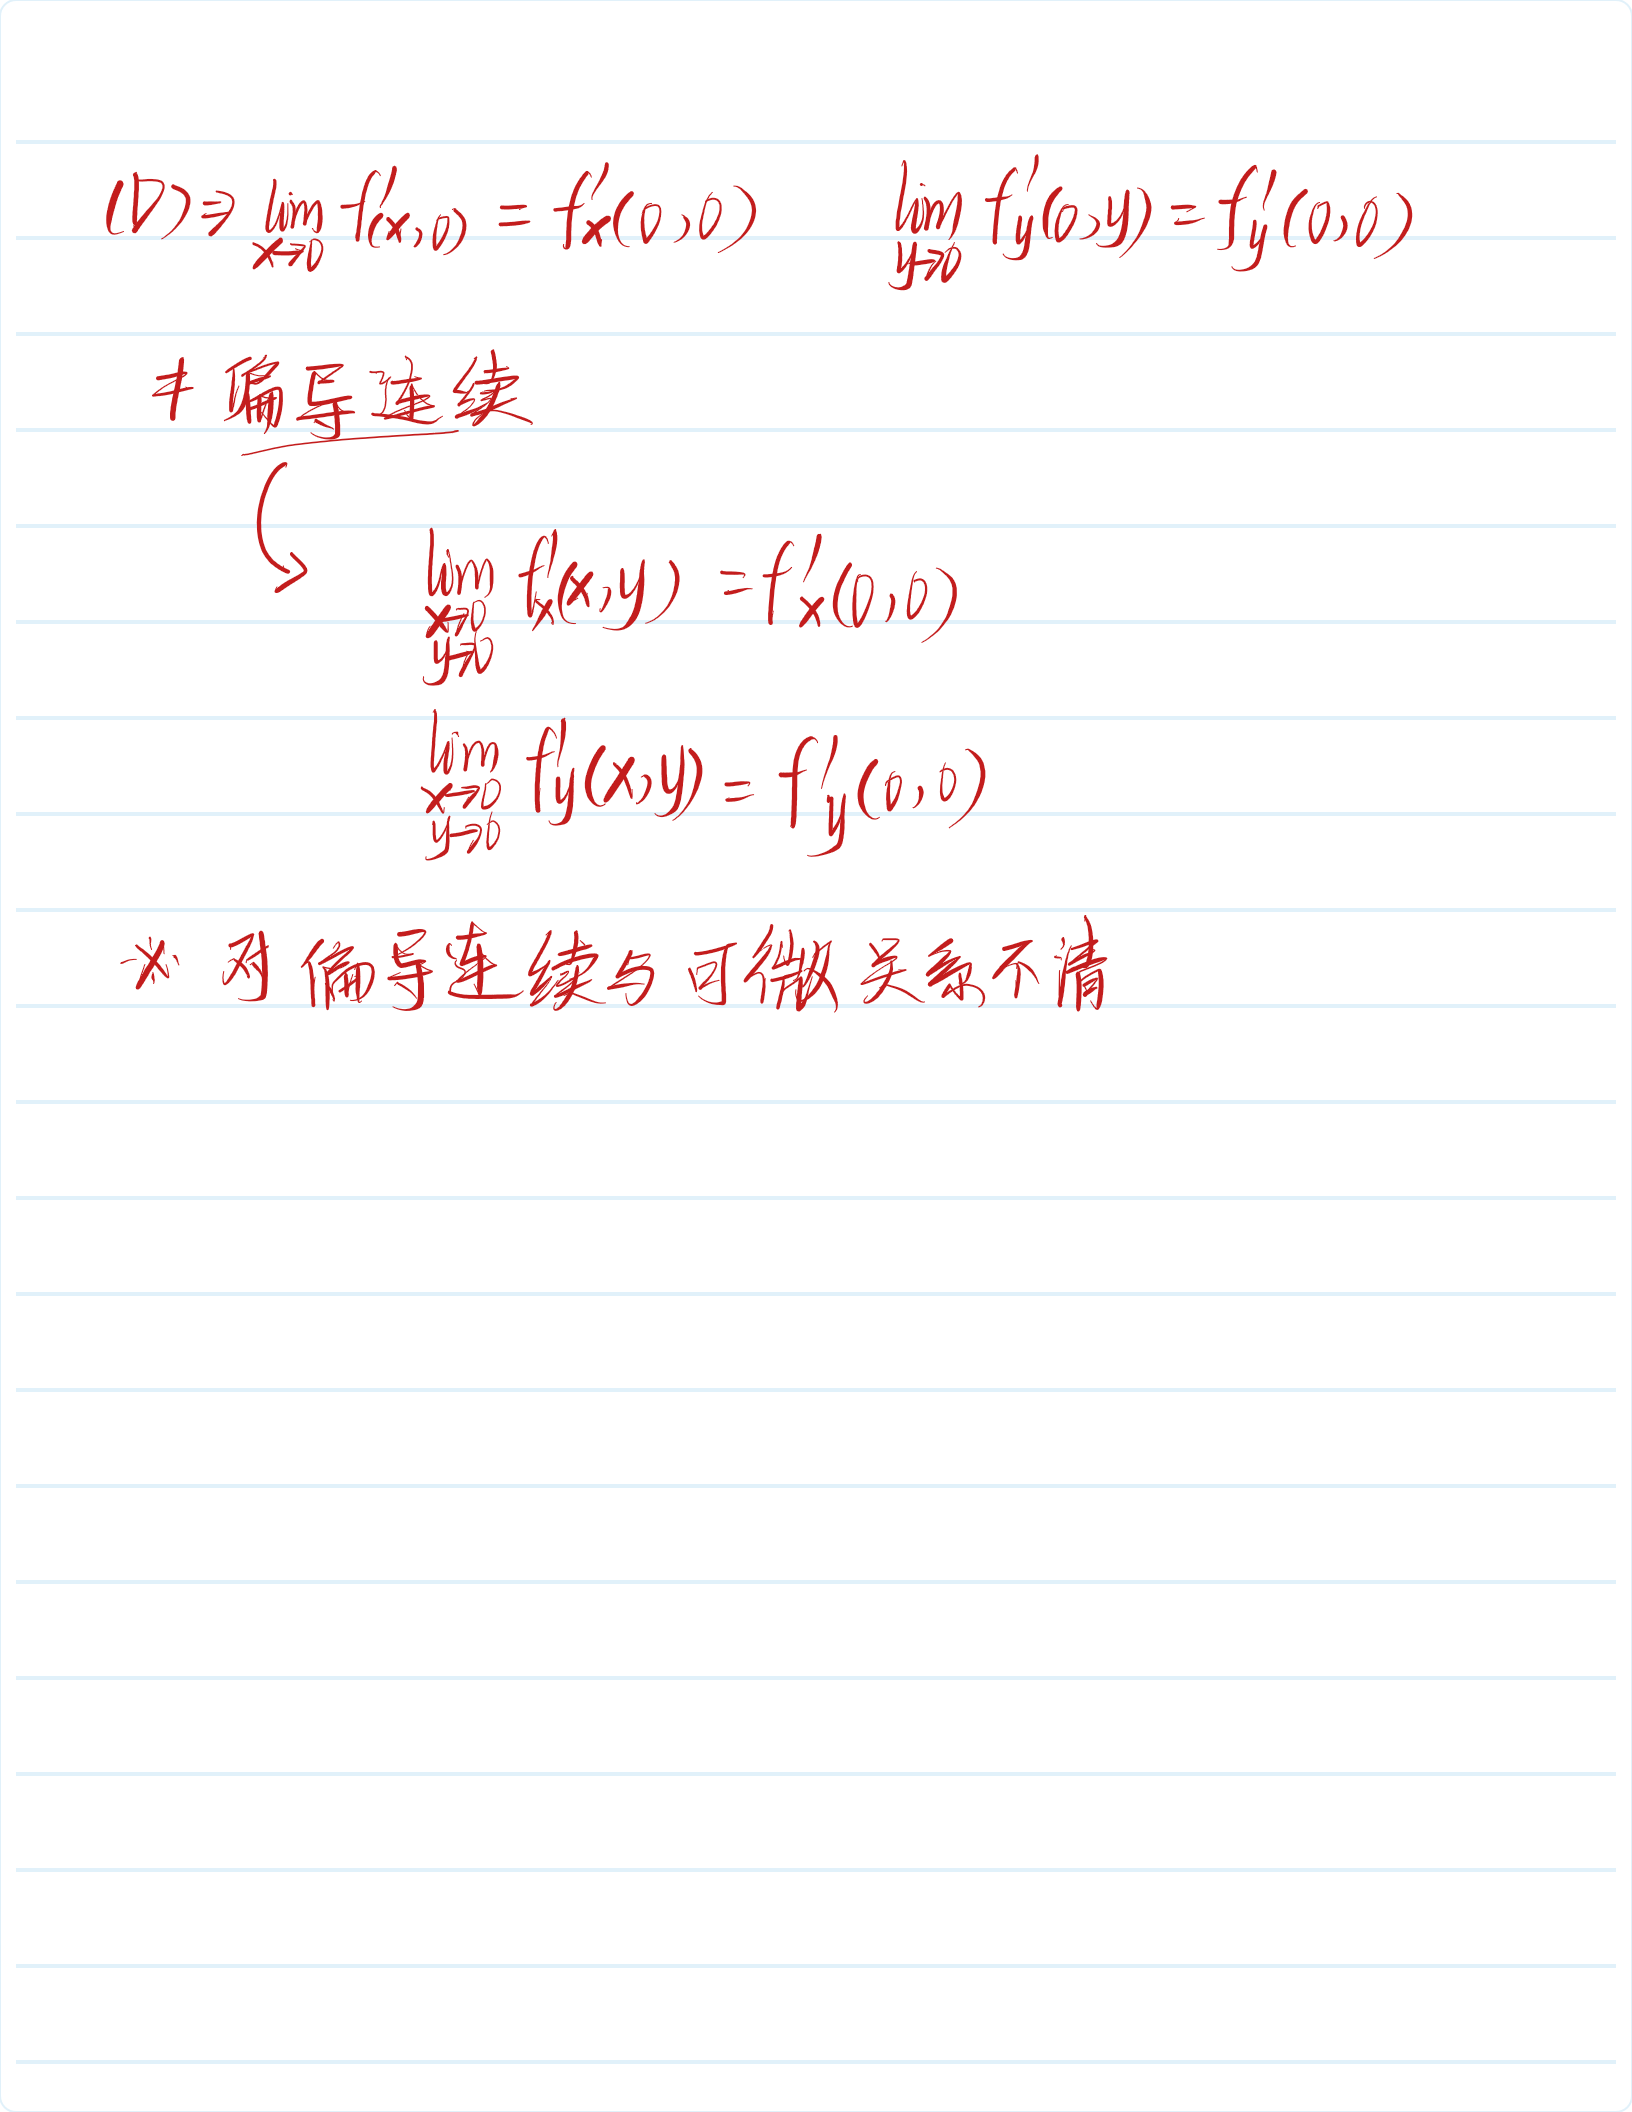 (D) ⇒ lim x→0 f'(x,0) = f'x(0,0) lim y→0 f'y(0,y) = f'y(0,0)
≠ 偏导连续
lim x→0 y→0 f'x(x,y) = f'x(0,0)
lim x→0 y→0 f'y(x,y) = f'y(0,0)
※ 对偏导连续与可微关系不清